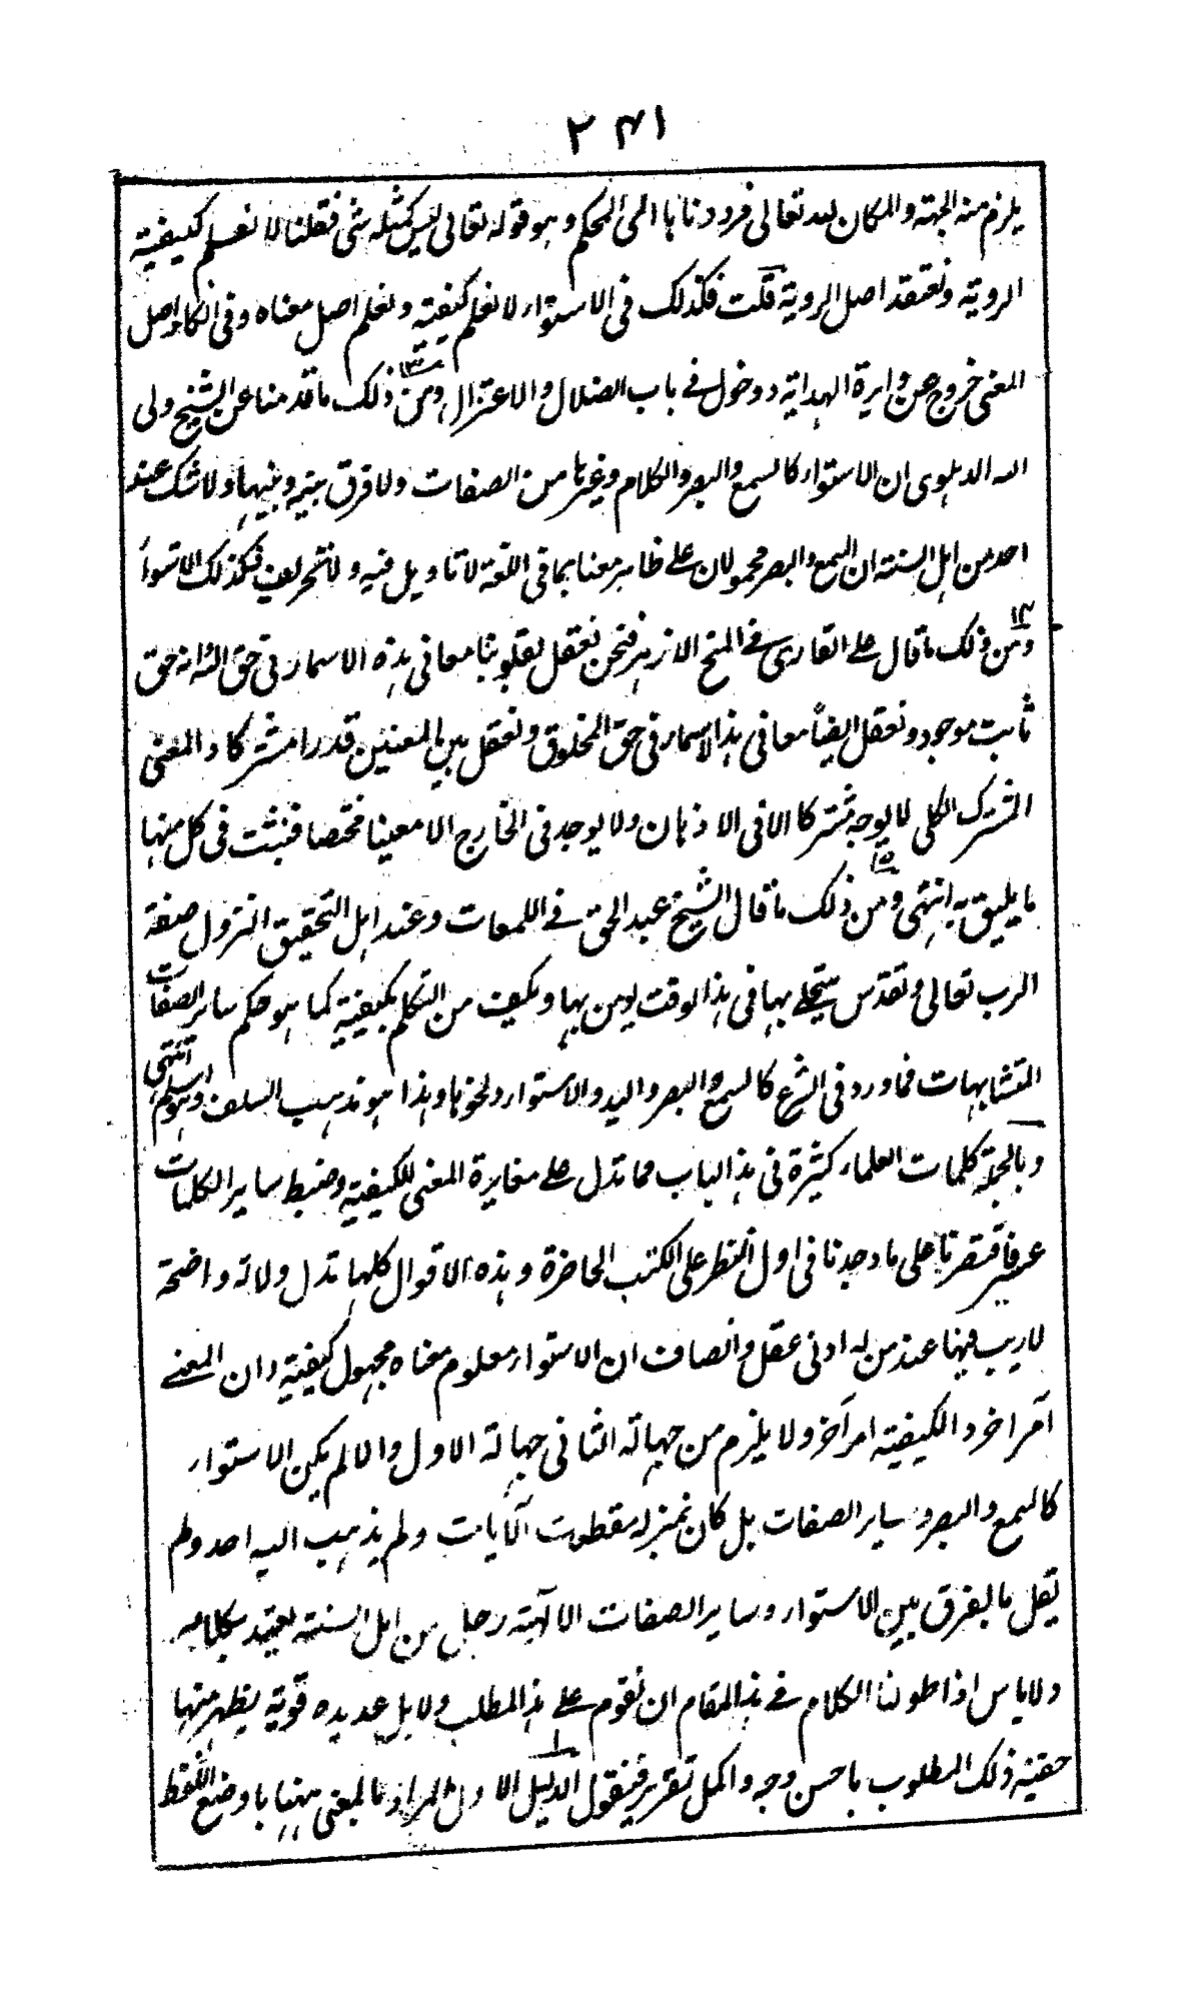 ٢٤١
يلزم منه الجهة والمكان لله تعالى فرددناها الى المحكم وهو قوله تعالى ليس كمثله شئ فقلنا لا نعلم كيفية
الروية ونعتقد اصل الروية قلت فكذلك في الاستواء لا نعلم كيفية ونعلم اصل معناه وفي انكار اصل
المعنى خروج عن دايرة الهداية ودخول في باب الضلال والاعتزال ١٣ ومن ذلك ما قدمنا عن الشيخ ولى
الله الدهلوى ان الاستواء كالسمع والبصر والكلام وغيرها من الصفات ولا فرق بينه وبينها ولا شك عند
احد من اهل السنة ان السمع والبصر محمولان على ظاهر معناهما في اللغة لا تاويل فيه ولا تحريف فكذلك الاستواء
١٤ ومن ذلك ما قال على القارى في المنح الازهر فنحن نعقل بقلوبنا معانى هذه الاسماء في حق الله انه حق
ثابت موجود ونعقل ايضاً معانى هذه الاسماء في حق المخلوق ونعقل بين المعنيين قدرا مشتركا والمعنى
المشترك الكلى لا يوجد مشتركا الا في الاذهان ولا يوجد في الخارج الا معينا مختصا فنثبت في كل منهما
ما يليق به انتهى ١٥ ومن ذلك ما قال الشيخ عبد الحق في اللمعات وعند اهل التحقيق النزول صفة
الرب تعالى وتقدس يتجلى بها في هذا الوقت يومن بها ويكف عن التكلم بكيفية كما هو حكم ساير الصفات
المتشابهات مما ورد في الشرع كالسمع والبصر واليد والاستواء ونحوها وهذا هو مذهب السلف وهو اسلم انتهى
وبالجملة كلمات العلماء كثيرة في هذا الباب مما تدل على مغايرة المعنى للكيفية وضبط ساير الكلمات
عسير فاقتصرنا على ما وجدنا في اول النظر على الكتب الحاضرة وهذه الاقوال كلها تدل دلالة واضحة
لا ريب فيها عند من له ادنى عقل وانصاف ان الاستواء معلوم معناه مجهول كيفية وان المعنى
امر اخر والكيفية امر آخر ولا يلزم من جهالة الثانى جهالة الاول والا لم يكن الاستواء
كالسمع والبصر وساير الصفات بل كان بمنزلة مقطعات الآيات ولم يذهب اليه احد ولم
يقل بالفرق بين الاستواء وساير الصفات الالهية رجل من اهل السنة يعتد بكلامه
ولا باس اذا طولنا الكلام في هذا المقام ان نقوم على هذا المطلب دلايل عديدة قوية يظهر منها
حقية ذلك المطلوب باحسن وجه واكمل تقرير فنقول الدليل الاول ١ المراد بالمعنى ههنا ما وضع اللفظ